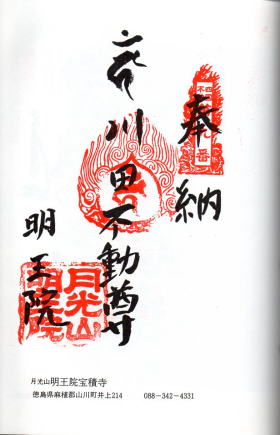 奉納
川田不動尊
明王院
月光山
明王院
月光山明王院宝積寺
徳島県麻植郡山川町井上214　088-342-4331